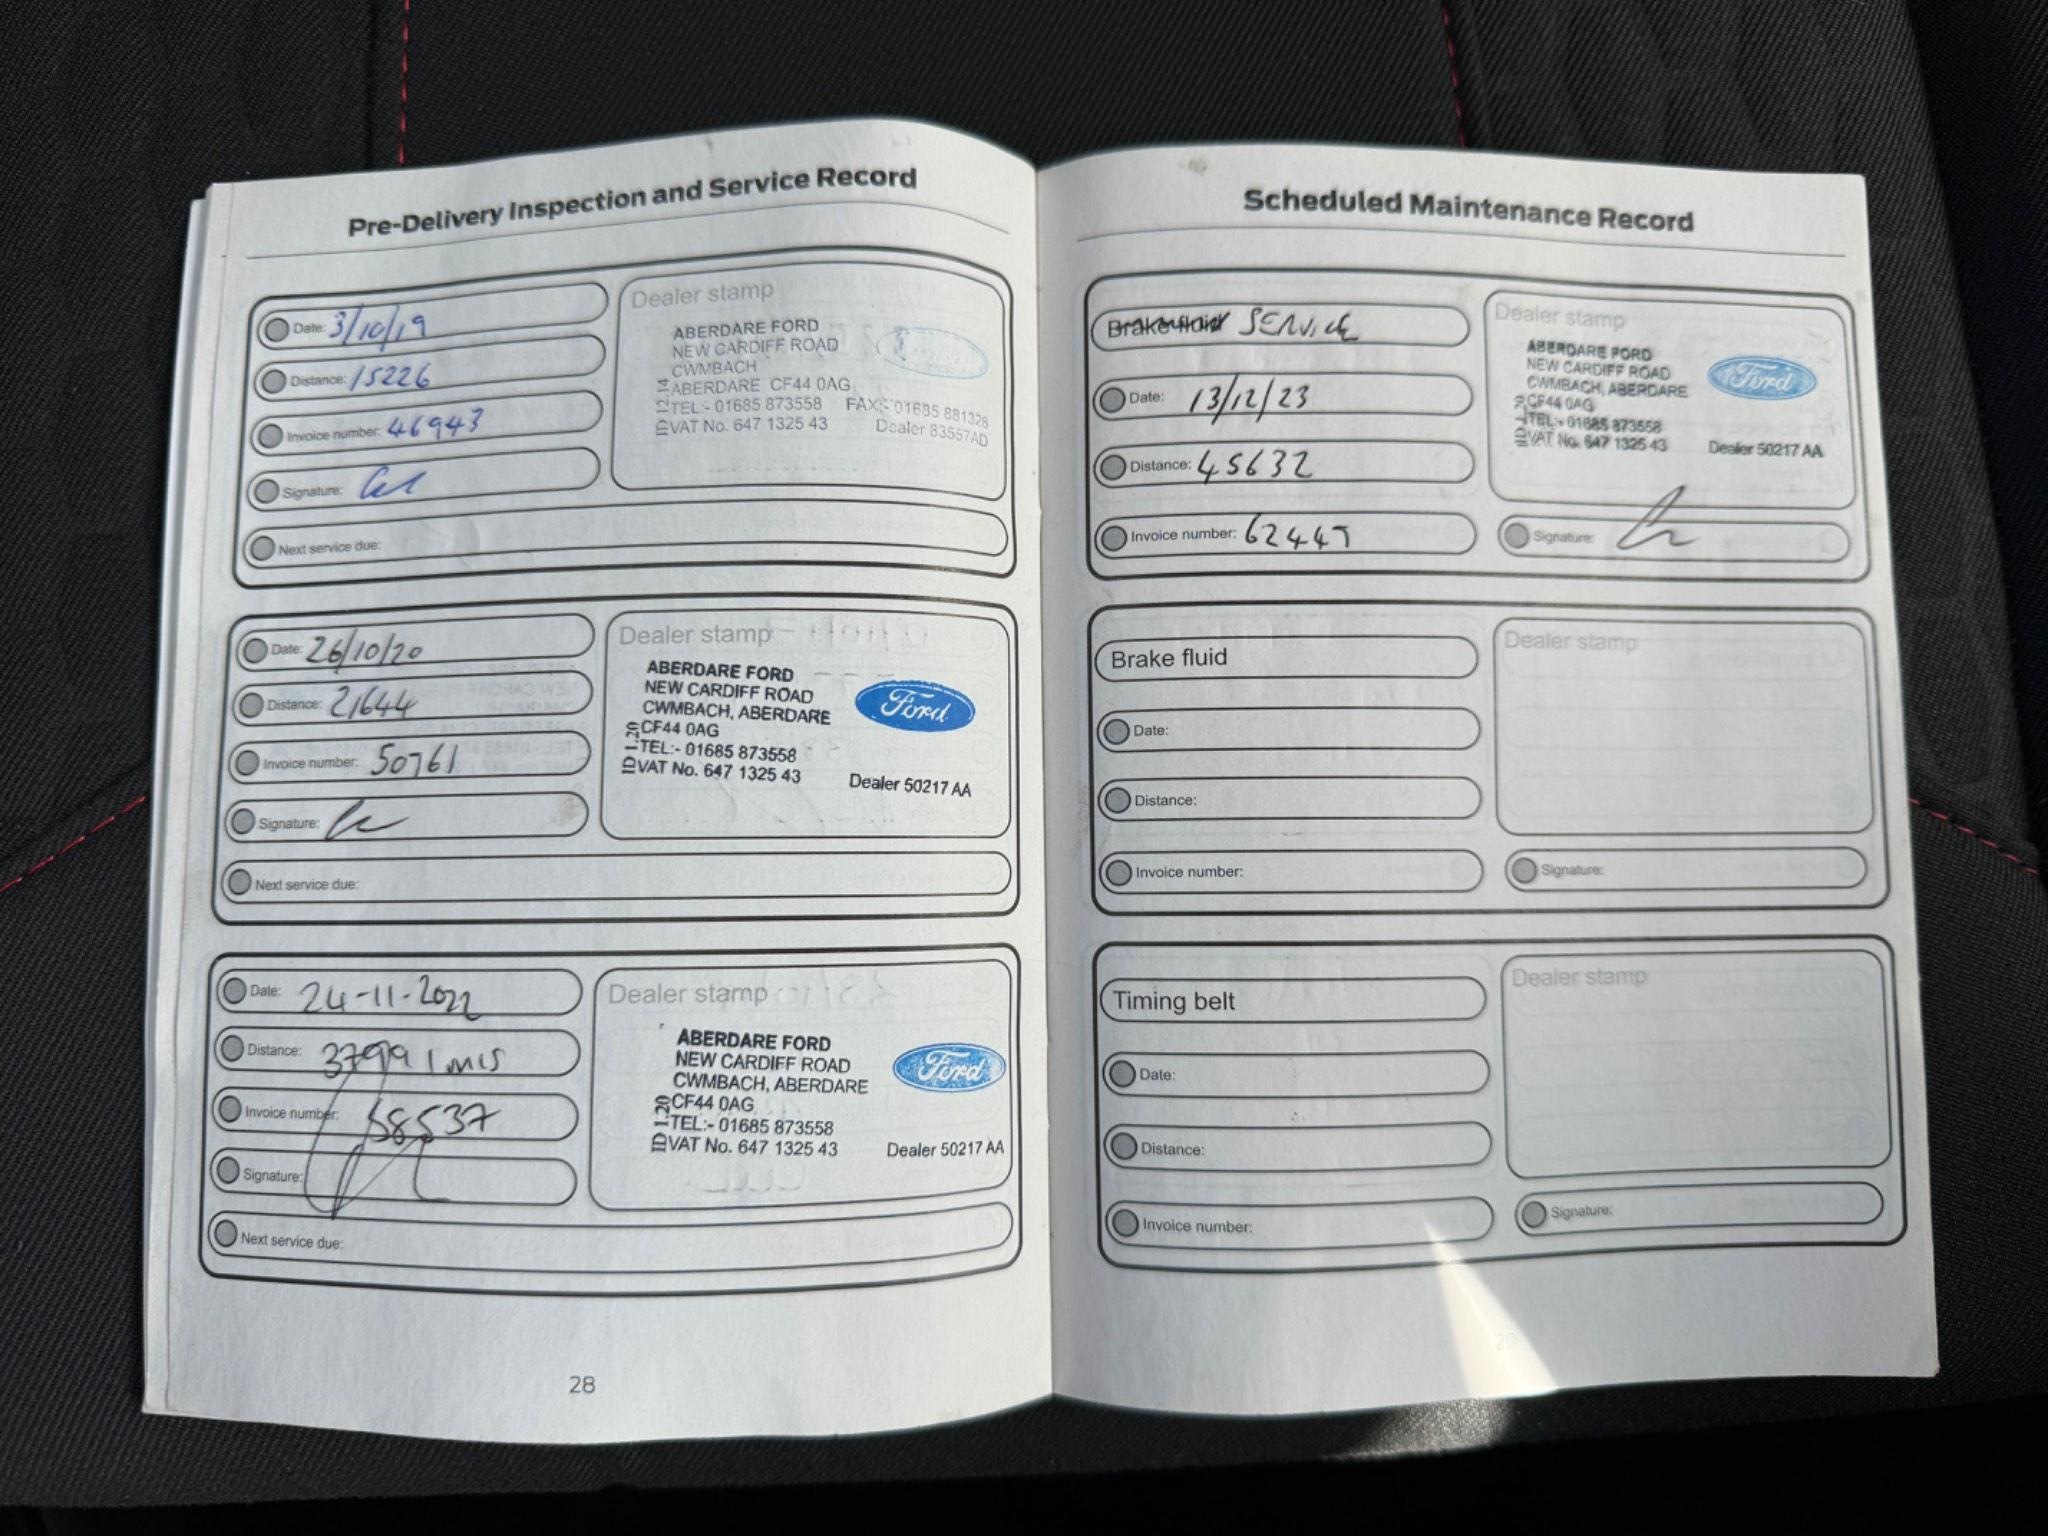 Pre-Delivery Inspection and Service Record
Date: 3/10/19
Distance: 15226
Invoice number: 46943
Signature:
Next service due:
Dealer stamp
ABERDARE FORD
NEW CARDIFF ROAD
CWMBACH
ABERDARE CF44 0AG
TEL:- 01685 873558 FAX:- 01685 881328
VAT No. 647 1325 43 Dealer 83557AD
ID 12.14
Date: 26/10/20
Distance: 21644
Invoice number: 50761
Signature:
Next service due:
Dealer stamp
ABERDARE FORD
NEW CARDIFF ROAD
CWMBACH, ABERDARE
CF44 0AG
TEL:- 01685 873558
VAT No. 647 1325 43
ID 1.20
Ford
Dealer 50217 AA
Date: 24-11-2022
Distance: 37991 mls
Invoice number: 58537
Signature:
Next service due:
Dealer stamp
ABERDARE FORD
NEW CARDIFF ROAD
CWMBACH, ABERDARE
CF44 0AG
TEL:- 01685 873558
VAT No. 647 1325 43
ID 1.20
Ford
Dealer 50217 AA
28
Scheduled Maintenance Record
Brake fluid SERVICE
Date: 13/12/23
Distance: 45632
Invoice number: 62447
Dealer stamp
ABERDARE FORD
NEW CARDIFF ROAD
CWMBACH, ABERDARE
CF44 0AG
TEL:- 01685 873558
VAT No. 647 1325 43
Ford
Dealer 50217 AA
Signature:
Brake fluid
Date:
Distance:
Invoice number:
Dealer stamp
Signature:
Timing belt
Date:
Distance:
Invoice number:
Dealer stamp
Signature:
29